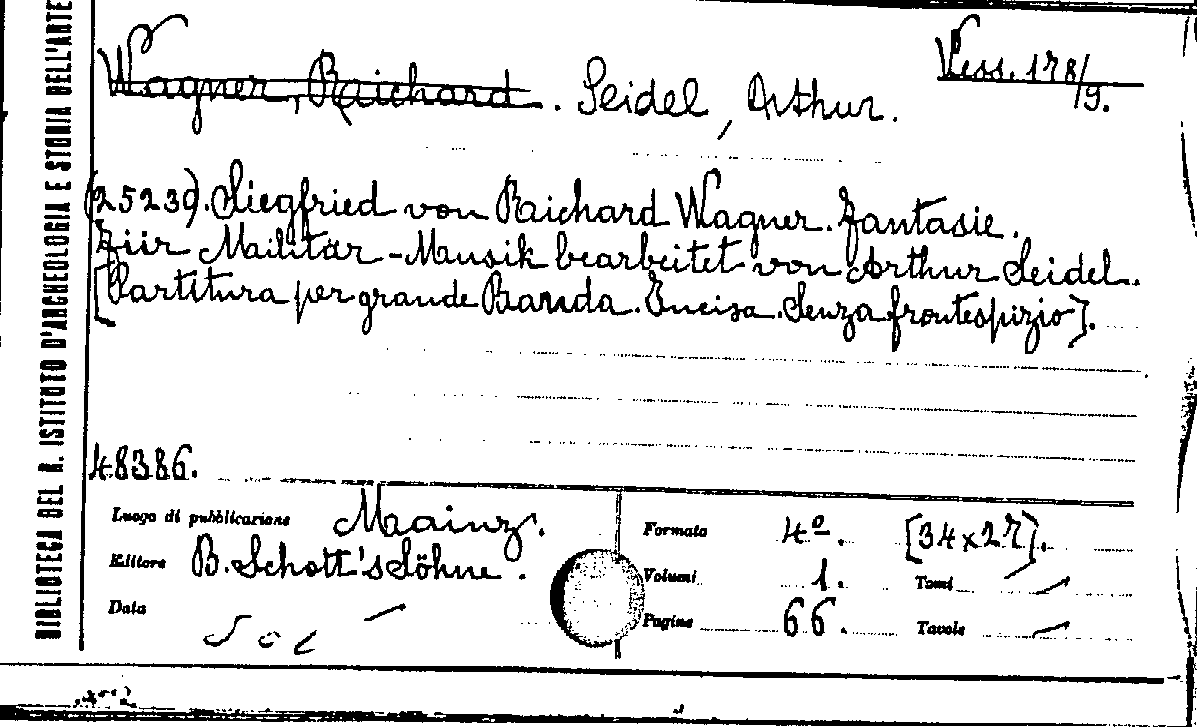 BIBLIOTECA DEL R. ISTITUTO D'ARCHEOLOGIA E STORIA DELL'ARTE
Vess. 178/9.
Wagner, Raichard. Seidel, Arthur.
(25239). Siegfried von Raichard Wagner. Fantasie.
Züir Mailitär-Mausik bearbeitet von Arthur Seidel.
[Partitura per grande Baruda. Incisa. Senza frontespizio].
48386.
Luogo di pubblicazione Maainz.
Editore B. Schott's Söhne.
Data
Formato 4º. [34x27].
Volumi 1. Tomi —
Pagine 66. Tavole —